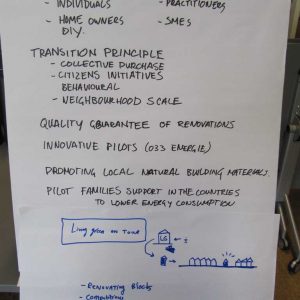 - INDIVIDUALS
- PRACTITIONERS
- HOME OWNERS
- SMES
D.I.Y.
TRANSITION PRINCIPLE
- COLLECTIVE PURCHASE
- CITIZENS INITIATIVES
BEHAVIOURAL
- NEIGHBOURHOOD SCALE
QUALITY GUARANTEE OF RENOVATIONS
INNOVATIVE PILOTS (033 ENERGIE)
PROMOTING LOCAL NATURAL BUILDING MATERIALS.
PILOT FAMILIES SUPPORT IN THE COUNTRIES
TO LOWER ENERGY CONSUMPTION
Living green on Tour
LG
- Renovating Blocks
- Competitions